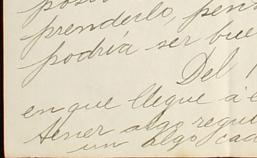 prenderlo, pen
podría ser bue
Del
en que llegue a e
tener algo regu
un algo cad